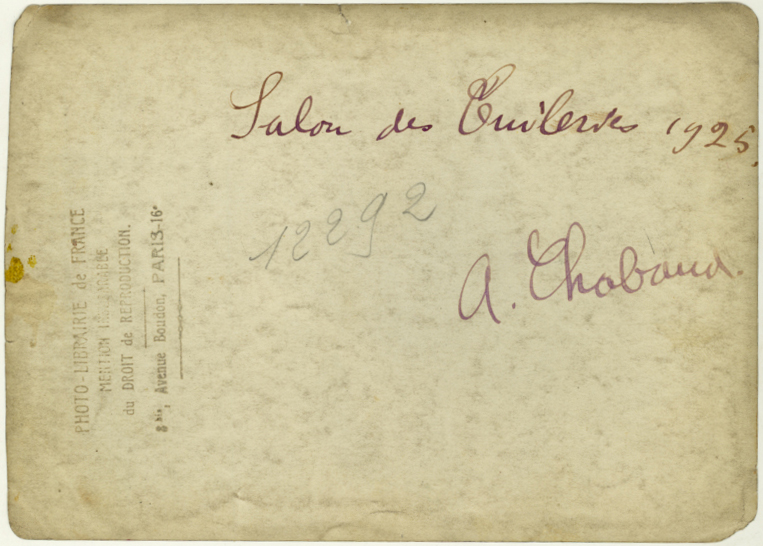 Salon des Tuileries 1925.
12292
A. Chabaud.
PHOTO-LIBRAIRIE de FRANCE
MENTION INSÉPARABLE
du DROIT de REPRODUCTION.
8 bis, Avenue Boudon, PARIS-16e